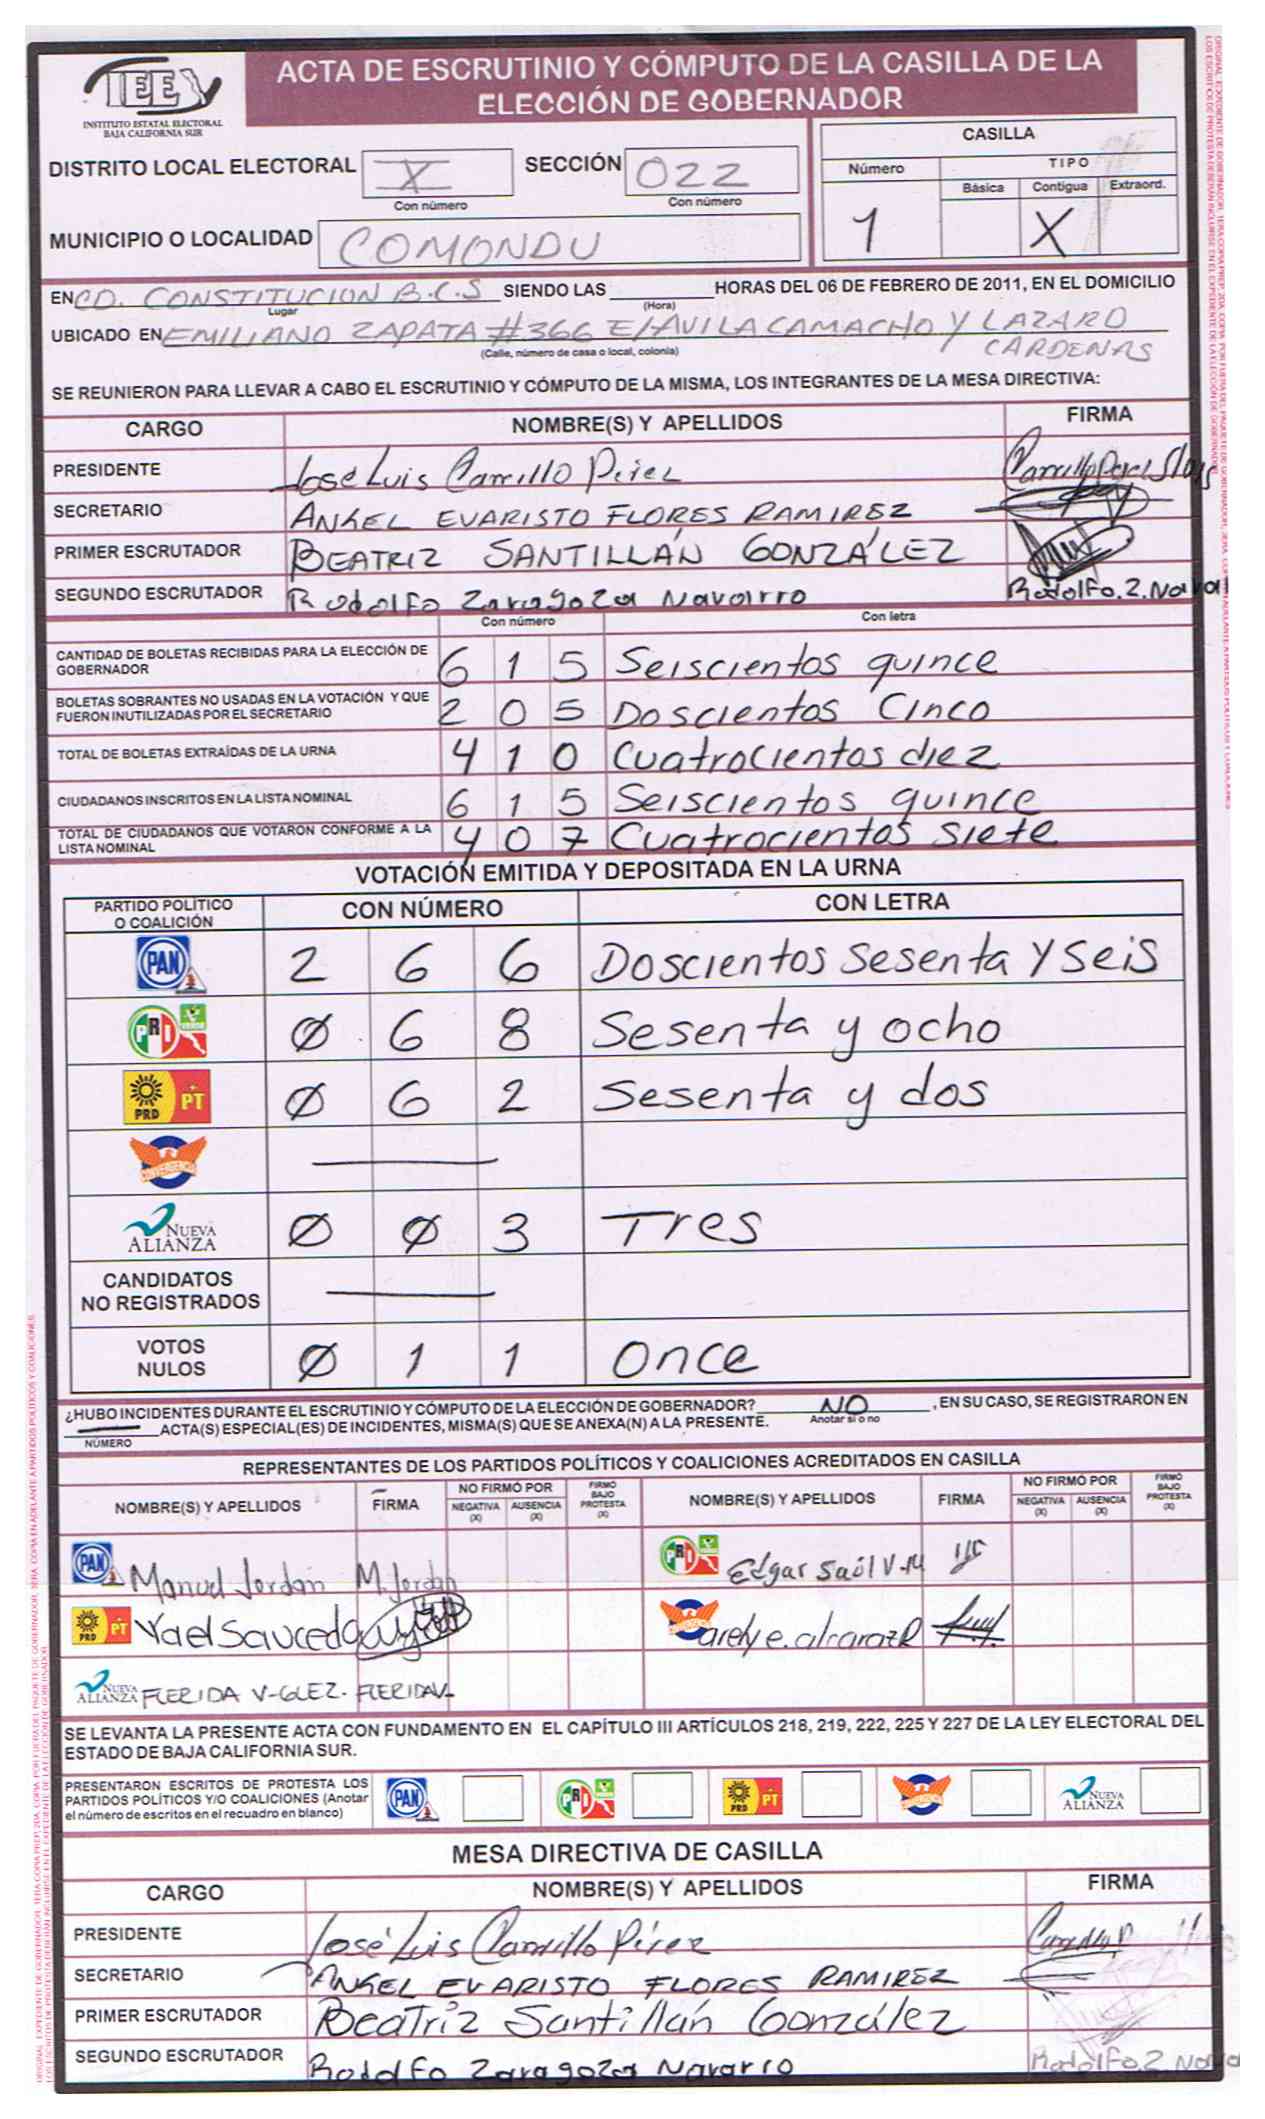 IEE
INSTITUTO ESTATAL ELECTORAL
BAJA CALIFORNIA SUR
ACTA DE ESCRUTINIO Y CÓMPUTO DE LA CASILLA DE LA
ELECCIÓN DE GOBERNADOR
DISTRITO LOCAL ELECTORAL X SECCIÓN 022
Con número Con número
MUNICIPIO O LOCALIDAD COMONDU
CASILLA
Número TIPO
Básica Contigua Extraord.
1 X
EN CD. CONSTITUCION B.C.S SIENDO LAS HORAS DEL 06 DE FEBRERO DE 2011, EN EL DOMICILIO
Lugar (Hora)
UBICADO EN EMILIANO ZAPATA #366 E/AVILA CAMACHO Y LAZARO
(Calle, número de casa o local, colonia) CARDENAS
SE REUNIERON PARA LLEVAR A CABO EL ESCRUTINIO Y CÓMPUTO DE LA MISMA, LOS INTEGRANTES DE LA MESA DIRECTIVA:
CARGO NOMBRE(S) Y APELLIDOS FIRMA
PRESIDENTE José Luis Carrillo Pérez
SECRETARIO ANGEL EVARISTO FLORES RAMIREZ
PRIMER ESCRUTADOR BEATRIZ SANTILLÁN GONZÁLEZ
SEGUNDO ESCRUTADOR Rodolfo Zaragoza Navarro Rodolfo.Z.Nava
Con número Con letra
CANTIDAD DE BOLETAS RECIBIDAS PARA LA ELECCIÓN DE
GOBERNADOR 6 1 5 Seiscientos quince
BOLETAS SOBRANTES NO USADAS EN LA VOTACIÓN Y QUE
FUERON INUTILIZADAS POR EL SECRETARIO 2 0 5 Doscientos Cinco
TOTAL DE BOLETAS EXTRAÍDAS DE LA URNA 4 1 0 Cuatrocientos diez
CIUDADANOS INSCRITOS EN LA LISTA NOMINAL 6 1 5 Seiscientos quince
TOTAL DE CIUDADANOS QUE VOTARON CONFORME A LA
LISTA NOMINAL 4 0 7 Cuatrocientos Siete
VOTACIÓN EMITIDA Y DEPOSITADA EN LA URNA
PARTIDO POLÍTICO
O COALICIÓN CON NÚMERO CON LETRA
PAN 2 6 6 Doscientos Sesenta y Seis
PRI VERDE Ø 6 8 Sesenta y ocho
PRD PT Ø 6 2 Sesenta y dos
CONVERGENCIA
NUEVA ALIANZA Ø Ø 3 Tres
CANDIDATOS
NO REGISTRADOS
VOTOS
NULOS Ø 1 1 Once
¿HUBO INCIDENTES DURANTE EL ESCRUTINIO Y CÓMPUTO DE LA ELECCIÓN DE GOBERNADOR? NO , EN SU CASO, SE REGISTRARON EN
Anotar si o no
ACTA(S) ESPECIAL(ES) DE INCIDENTES, MISMA(S) QUE SE ANEXA(N) A LA PRESENTE.
NÚMERO
REPRESENTANTES DE LOS PARTIDOS POLÍTICOS Y COALICIONES ACREDITADOS EN CASILLA
NOMBRE(S) Y APELLIDOS FIRMA NO FIRMÓ POR NEGATIVA (X) AUSENCIA (X) FIRMÓ BAJO PROTESTA (X) NOMBRE(S) Y APELLIDOS FIRMA NO FIRMÓ POR NEGATIVA (X) AUSENCIA (X) FIRMÓ BAJO PROTESTA (X)
PAN Manuel Jordán M. Jordán PRI Edgar Saúl V.M
PRD PT Yael Sauceda CONVERGENCIA arely e. alcaraz R
NUEVA ALIANZA FLERIDA V-GLEZ. FLERIDAV
SE LEVANTA LA PRESENTE ACTA CON FUNDAMENTO EN EL CAPÍTULO III ARTÍCULOS 218, 219, 222, 225 Y 227 DE LA LEY ELECTORAL DEL
ESTADO DE BAJA CALIFORNIA SUR.
PRESENTARON ESCRITOS DE PROTESTA LOS
PARTIDOS POLÍTICOS Y/O COALICIONES (Anotar
el número de escritos en el recuadro en blanco)
PAN PRI PRD PT CONVERGENCIA NUEVA ALIANZA
MESA DIRECTIVA DE CASILLA
CARGO NOMBRE(S) Y APELLIDOS FIRMA
PRESIDENTE José Luis Carrillo Pérez
SECRETARIO ANGEL EVARISTO FLORES RAMIREZ
PRIMER ESCRUTADOR Beatriz Santillán González
SEGUNDO ESCRUTADOR Rodolfo Zaragoza Navarro Rodolfo.Z Nava